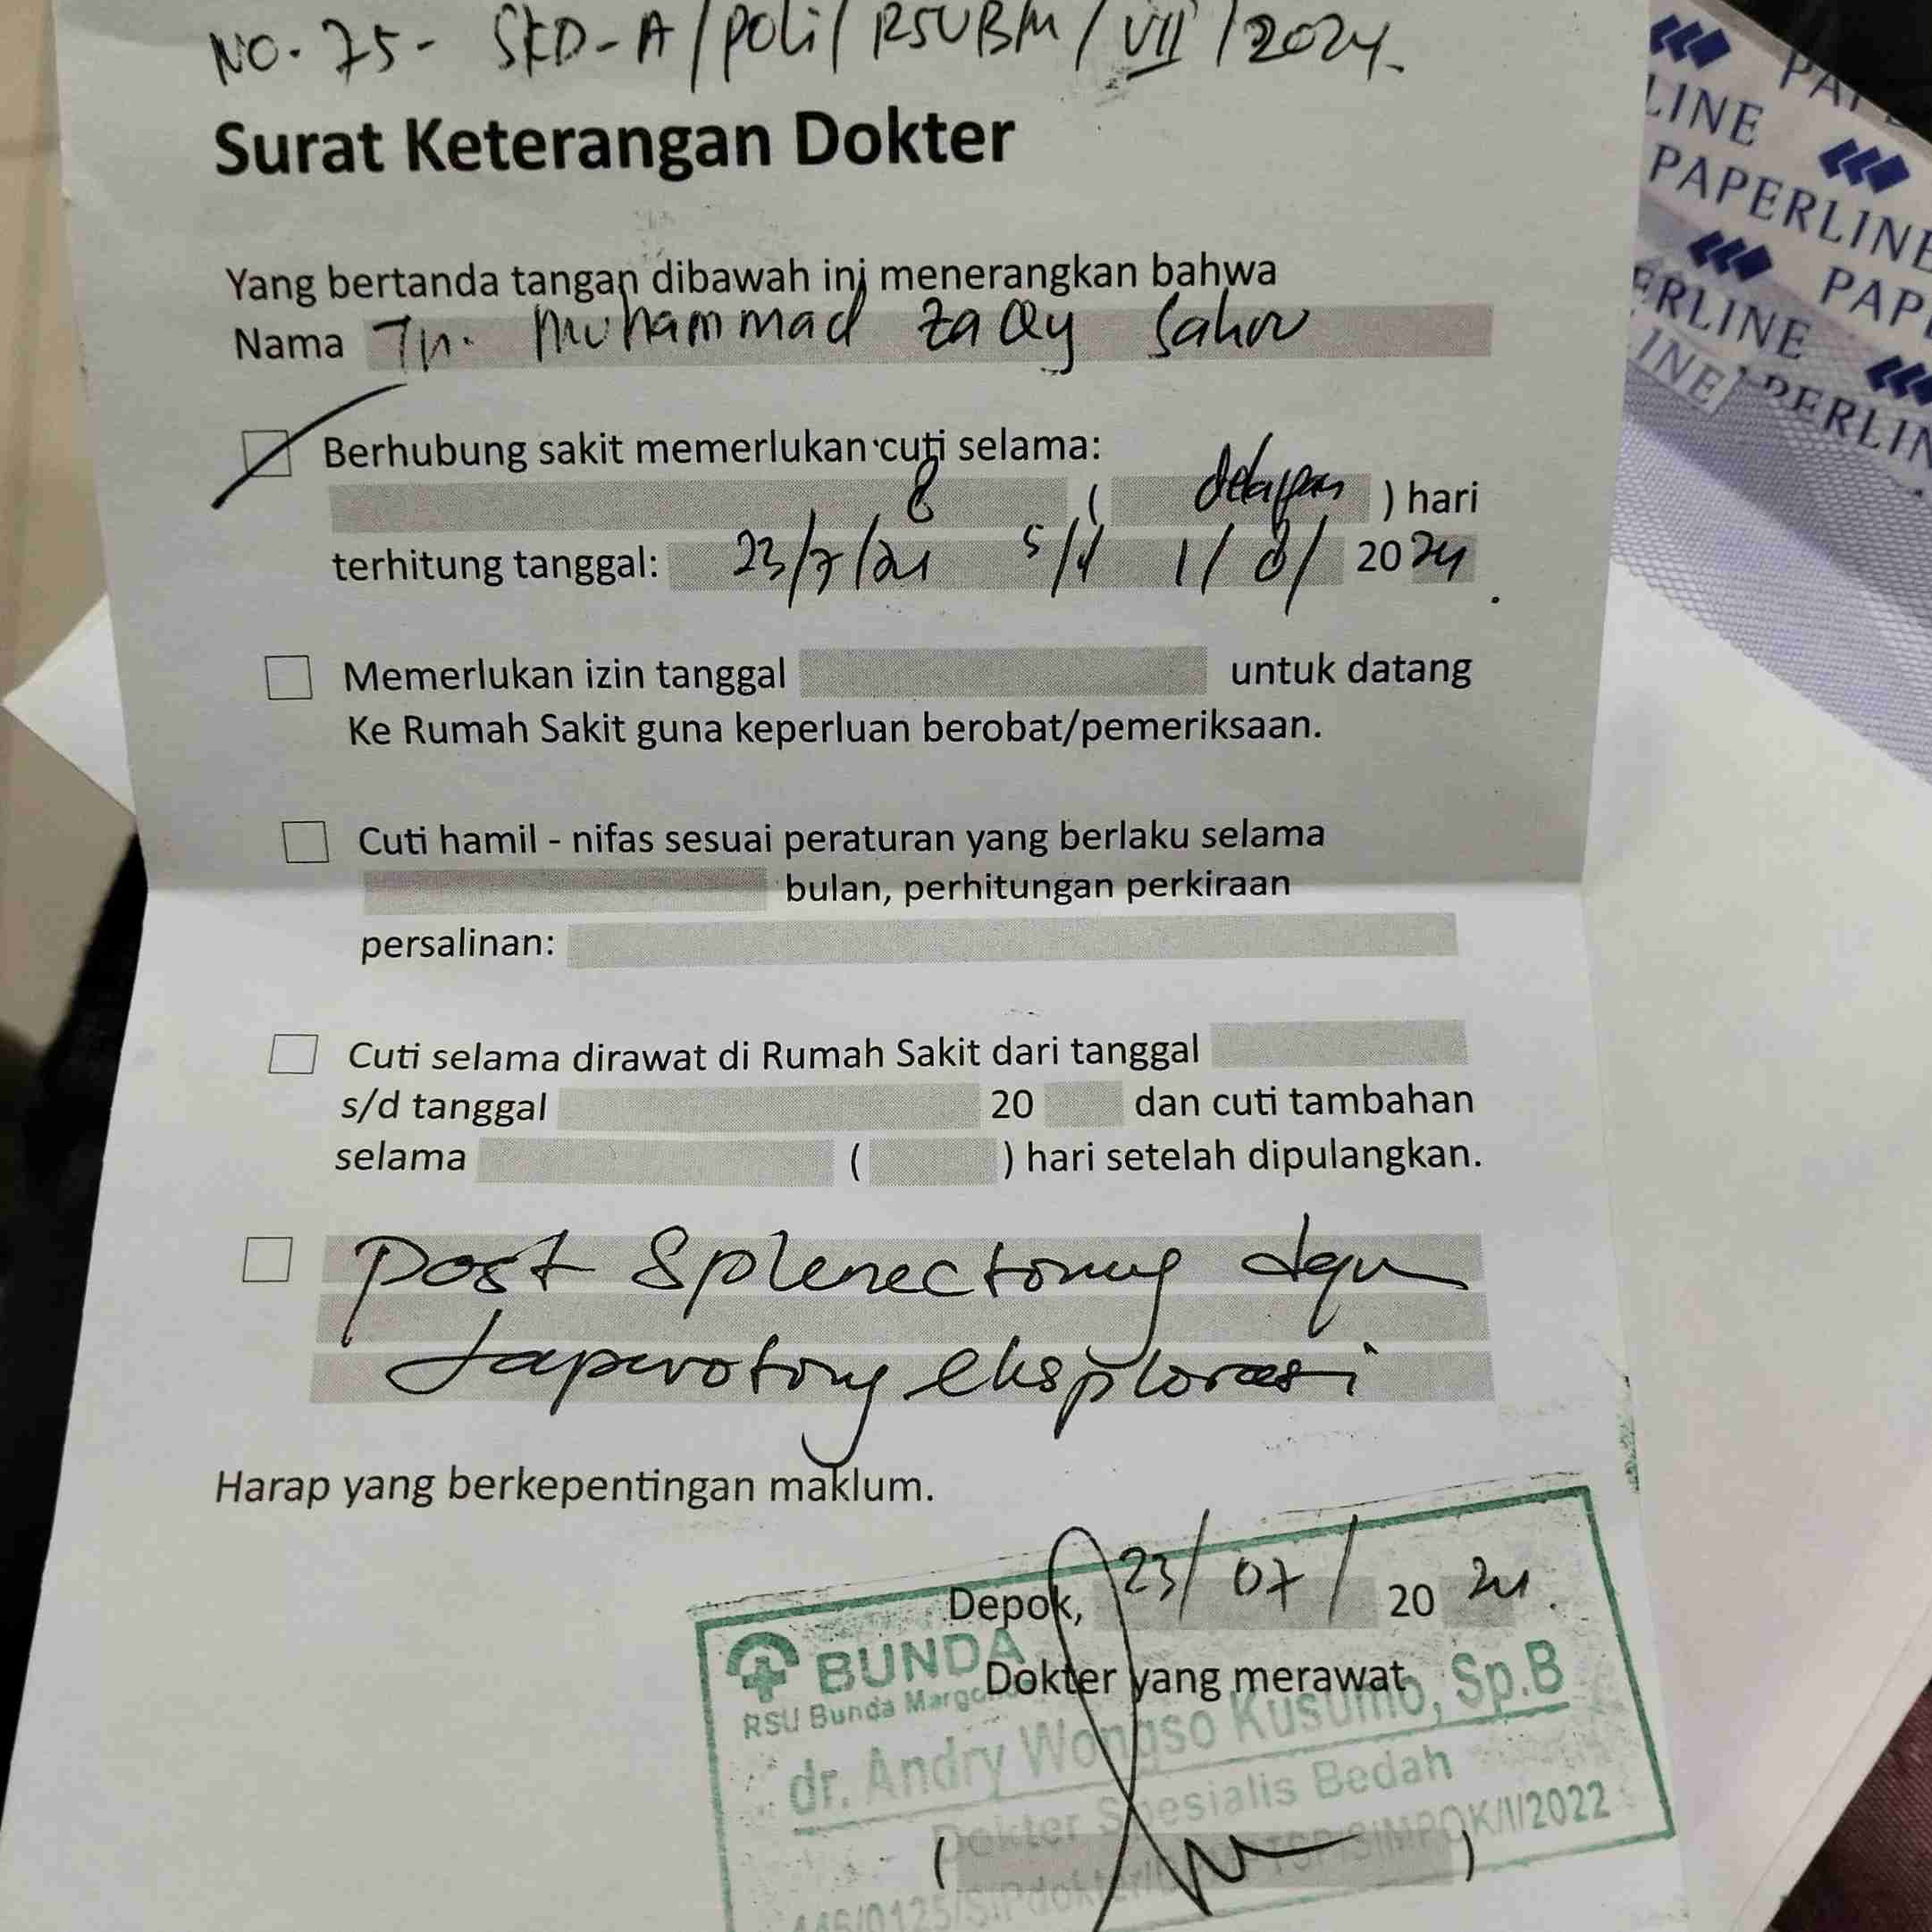 NO. 75 - SKD-A/POLI/RSUBM/VII/2024.
Surat Keterangan Dokter
Yang bertanda tangan dibawah ini menerangkan bahwa
Nama Tn. Muhammad Zaqy
Berhubung sakit memerlukan cuti selama:
8 ( delapan ) hari
terhitung tanggal: 23/7/24 s/d 1/8/ 2024
Memerlukan izin tanggal untuk datang
Ke Rumah Sakit guna keperluan berobat/pemeriksaan.
Cuti hamil - nifas sesuai peraturan yang berlaku selama
bulan, perhitungan perkiraan
persalinan:
Cuti selama dirawat di Rumah Sakit dari tanggal
s/d tanggal 20 dan cuti tambahan
selama ( ) hari setelah dipulangkan.
Post Splenectomy dgn
Laparotomy eksplorasi
Harap yang berkepentingan maklum.
Depok, 23/07/ 20 24.
BUNDA
Dokter yang merawat
RSU Bunda
dr. Andry Wongso Kusumo, Sp.B
Dokter Spesialis Bedah
( )
PAPERLINE
PAPERLINE